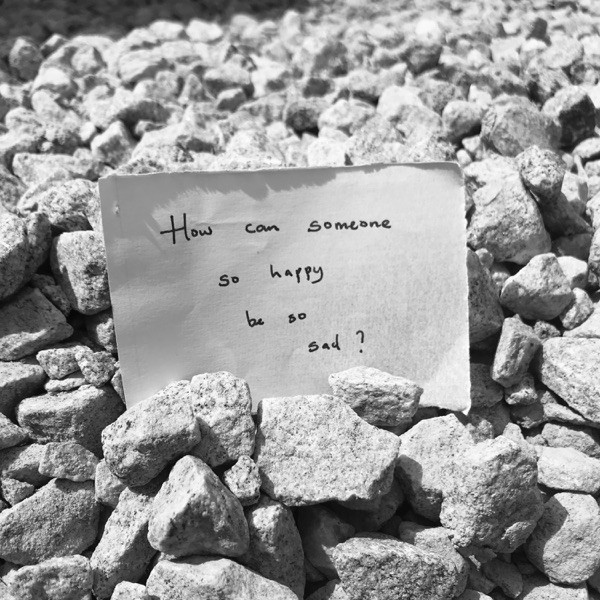 How can someone
so happy
be so
sad?